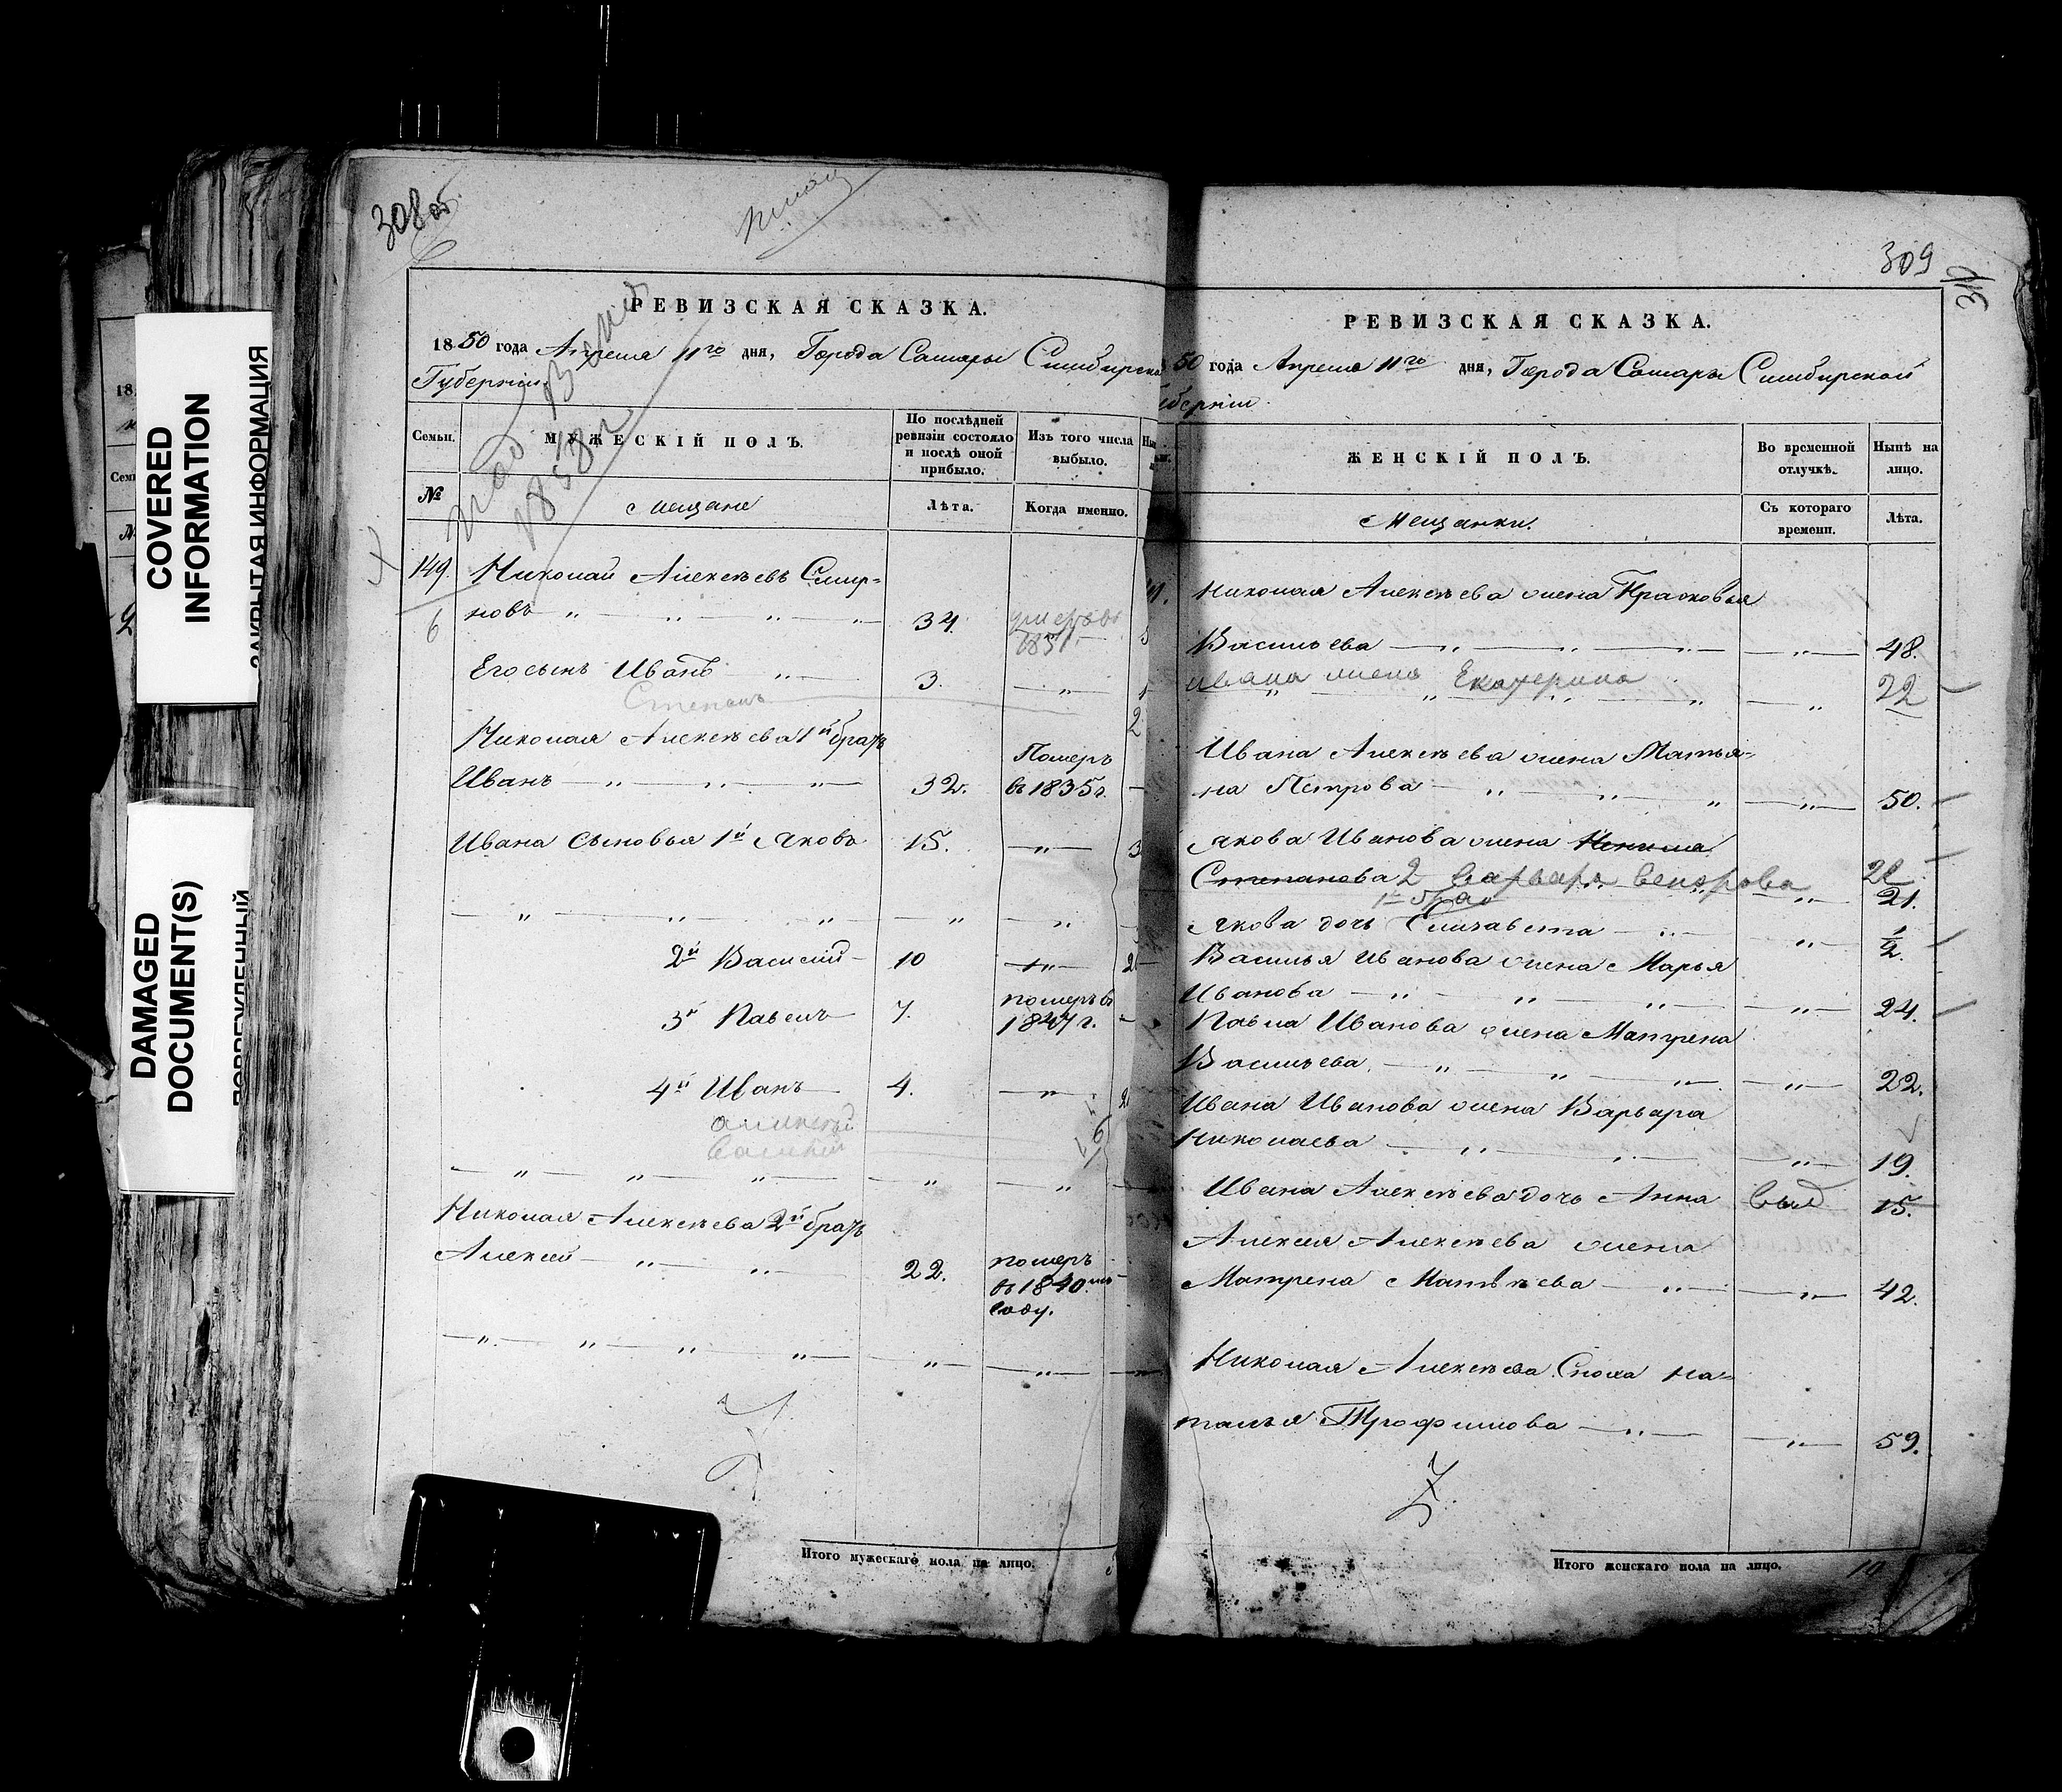 COVERED
INFORMATION
ЗАКРЫТАЯ ИНФОРМАЦИЯ
DAMAGED
DOCUMENT(S)
308 об.
РЕВИЗСКАЯ СКАЗКА.
1850 года Апреля 11го дня, Города Самары Симбирской
Губернiи.
Семьи. МУЖЕСКІЙ ПОЛЪ. По послѣдней ревизіи состояло и послѣ оной прибыло. Изъ того числа выбыло.
№ Мещане Лѣта. Когда именно.
1858 г
149. Николай Алексѣевъ Смир-
6 новъ 34. умеръ въ 185
Его сынъ Иванъ 3.
Степанъ
Николая Алексѣева 1й братъ
Иванъ 32. Померъ въ 1835 г.
Ивана сыновья 1й Яковъ 15. 3
2й Василий 10
3й Павелъ 7. померъ в 1847 г.
4й Иванъ 4.
алексей
василий
Николая Алексѣева 2й братъ
Алексей 22. померъ въ 1840мъ году.
Итого мужескаго пола на лицо.
309
310
РЕВИЗСКАЯ СКАЗКА.
50 года Апреля 11го дня, Города Самары Симбирской
берніи.
ЖЕНСКІЙ ПОЛЪ. Во временной отлучкѣ. Нынѣ на лицо.
Мещанки. Съ котораго времени. Лѣта.
Николая Алексѣева жена Прасковья
Васильева 48.
Ивана жена Екатерина 22
Ивана Алексѣева жена Татья-
на Петрова 50.
Якова Иванова жена
Степанова 2 Варвара 21.
1й брак
Якова дочь Елизавета ½.
Василья Иванова жена Марья
Иванова 24.
Павла Иванова жена Матрена
Васильева 22.
Ивана Иванова жена Варвара
Николаева 19.
Ивана Алексѣева дочь Анна выд 15.
Алексея Алексѣева жена
Матрена Матвѣева 42.
Николая Алексѣева Сноха На-
талья Трофимова 59.
Итого женскаго пола на лицо. 10